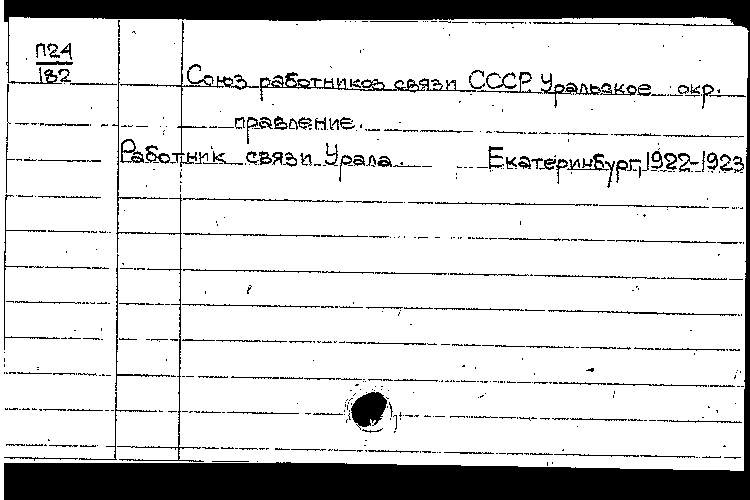 П24
182
Союз работников связи СССР. Уральское окр.
правление.
Работник связи Урала. Екатеринбург, 1922-1923